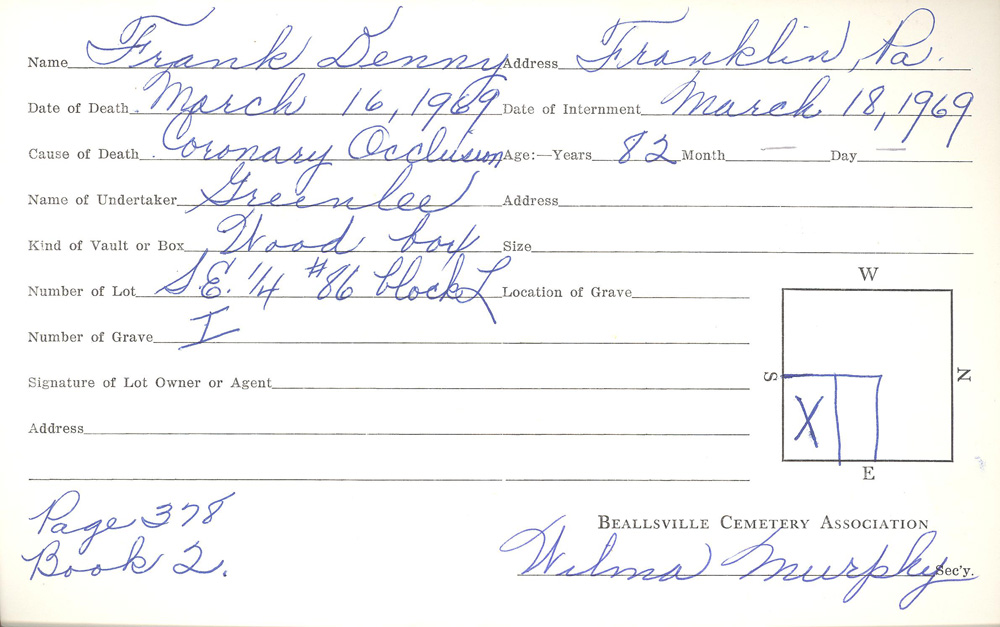 Name Frank Denny Address Franklin, Pa.
Date of Death March 16, 1969 Date of Internment March 18, 1969
Cause of Death Coronary Occlusion Age:—Years 82 Month — Day —
Name of Undertaker Greenlee Address
Kind of Vault or Box Wood box Size
Number of Lot S.E. 1/4 #86 block L Location of Grave
W
Number of Grave I
Signature of Lot Owner or Agent
S N
X
Address
E
Page 378
Beallsville Cemetery Association
Book 2.
Wilma Murphy Sec'y.